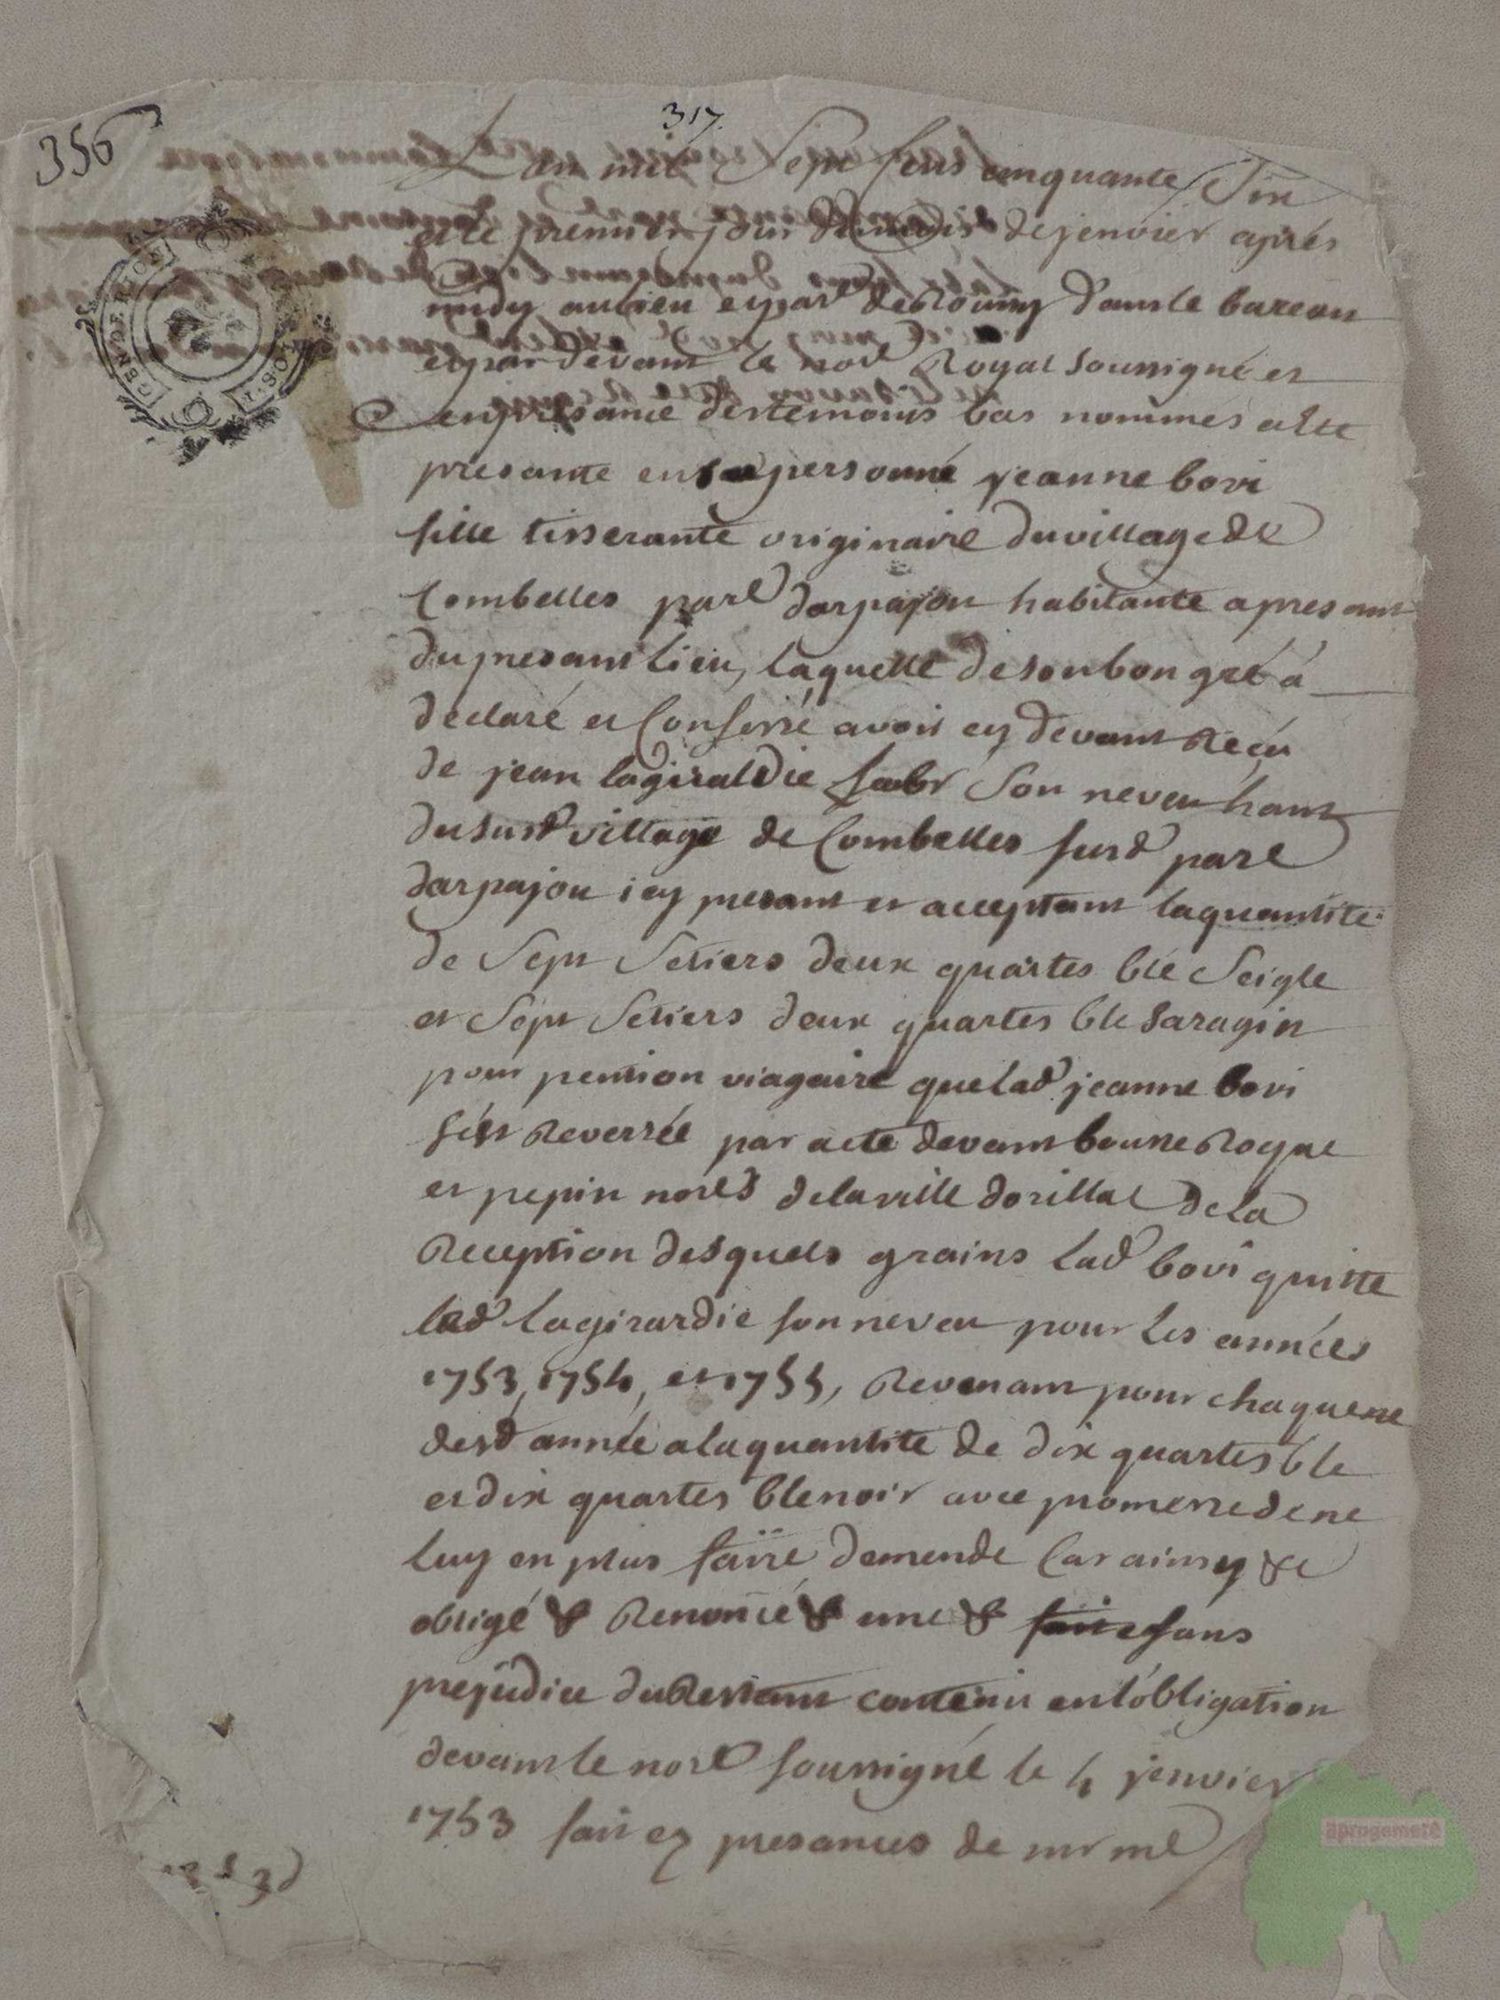 356
317.
GEN DE RIOM
Lan mil Sept Cens cinquante Six
et le premier jour du mois de jenvier après
midy au lieu et parle de Roumy dans le bareau
et par devant le nore Royal Soussigné et
en presance des temoins bas nommés a été
presante en sa personne jeanne bovi
fille tisserante originaire du village de
Combelles parle darpajou habitante a presant
du presant lieu, laquelle de son bon gré á
declaré et Confessé avoir cy devant Reçu
de jean lagiraldie son neveu hant
du susd village de Combelles susd parle
darpajou icy presant et acceptant la quantité
de Sept Setiers deux quartes blé Seigle
et Sept Setiers deux quartes ble Saragin
pour pention viagaire que lad jeanne bovi
sést Reverséé par acte devant bonne Royal
et pepin nores de la ville dorillac de la
Reception desquels grains lad bovi quitte
led lagirardie son neveu pour les années
1753, 1754, et 1755, Revenant pour chaquene
desd année a la quantité de dix quartes ble
et dix quartes ble noir avec promesse de ne
luy en plus faire demende Car ainsy &c
obligé & Renoncé & une & sans
prejudice du Restant contenu en lobligation
devant le nore soussigné le 4 jenvier
1753 fait ez presances de mr me